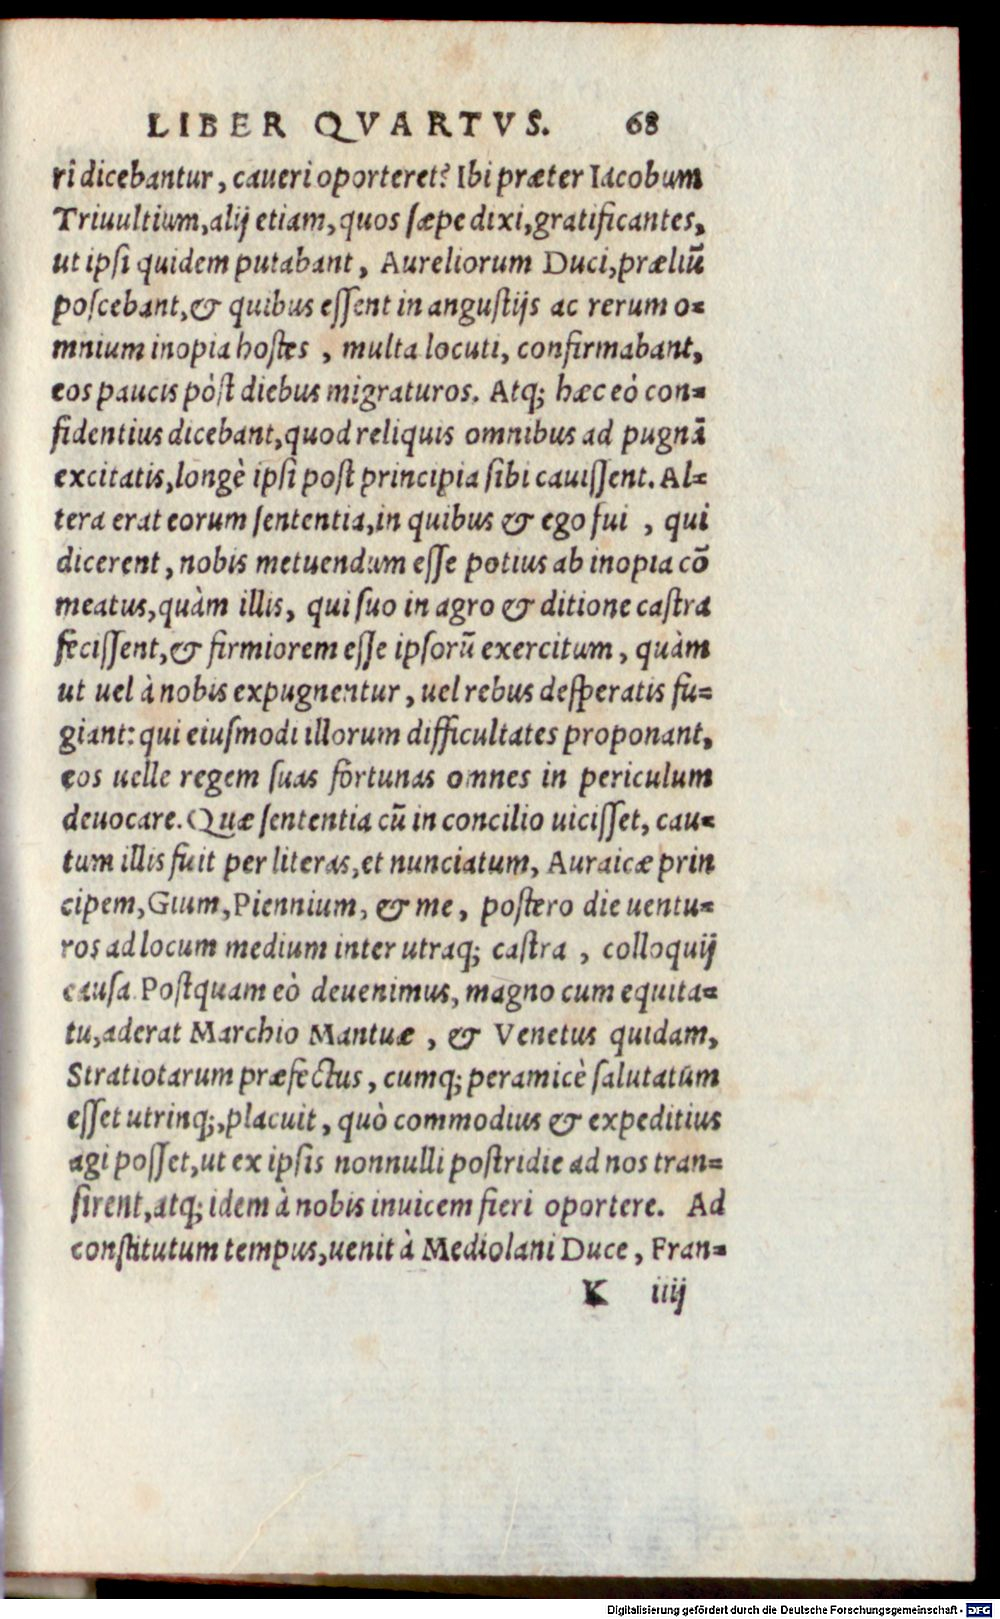 LIBER QVARTVS. 68
ri dicebantur, caueri oporteret? Ibi præter Iacobum
Triuultium, alij etiam, quos sæpe dixi, gratificantes,
ut ipsi quidem putabant, Aureliorum Duci, præliũ
poscebant, & quibus essent in angustijs ac rerum o=
mnium inopia hostes, multa locuti, confirmabant,
eos paucis pòst diebus migraturos. Atq; hæc eò con=
fidentius dicebant, quod reliquis omnibus ad pugnã
excitatis, longè ipsi post principia sibi cauissent. Al=
tera erat eorum sententia, in quibus & ego fui, qui
dicerent, nobis metuendum esse potius ab inopia cõ
meatus, quàm illis, qui suo in agro & ditione castra
fecissent, & firmiorem esse ipsorũ exercitum, quàm
ut uel à nobis expugnentur, uel rebus desperatis fu=
giant: qui eiusmodi illorum difficultates proponant,
eos uelle regem suas fortunas omnes in periculum
deuocare. Quæ sententia cũ in concilio uicisset, cau=
tum illis fuit per literas, et nunciatum, Auraicæ prin
cipem, Gium, Piennium, & me, postero die uentu=
ros ad locum medium inter utraq; castra, colloquij
causa. Postquam eò deuenimus, magno cum equita=
tu, aderat Marchio Mantuæ, & Venetus quidam,
Stratiotarum præfectus, cumq; peramicè salutatum
esset utrinq;, placuit, quò commodius & expeditius
agi posset, ut ex ipsis nonnulli postridie ad nos tran=
sirent, atq; idem à nobis inuicem fieri oportere. Ad
constitutum tempus, uenit à Mediolani Duce, Fran=
K iiij
Digitalisierung gefördert durch die Deutsche Forschungsgemeinschaft - DFG